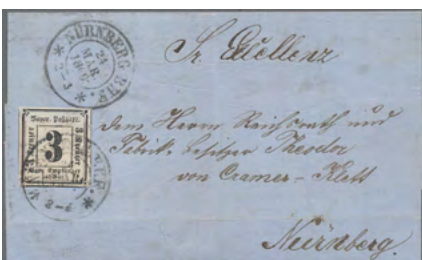 NÜRNBERG BHF
24
MÄR.
Sr. Excellenz
Bayer. Posttaxe
3 Kreuzer
3
dem Herrn Reichsrath und
Fabrik-besitzer Theodor
von Cramer-Klett
Nürnberg.